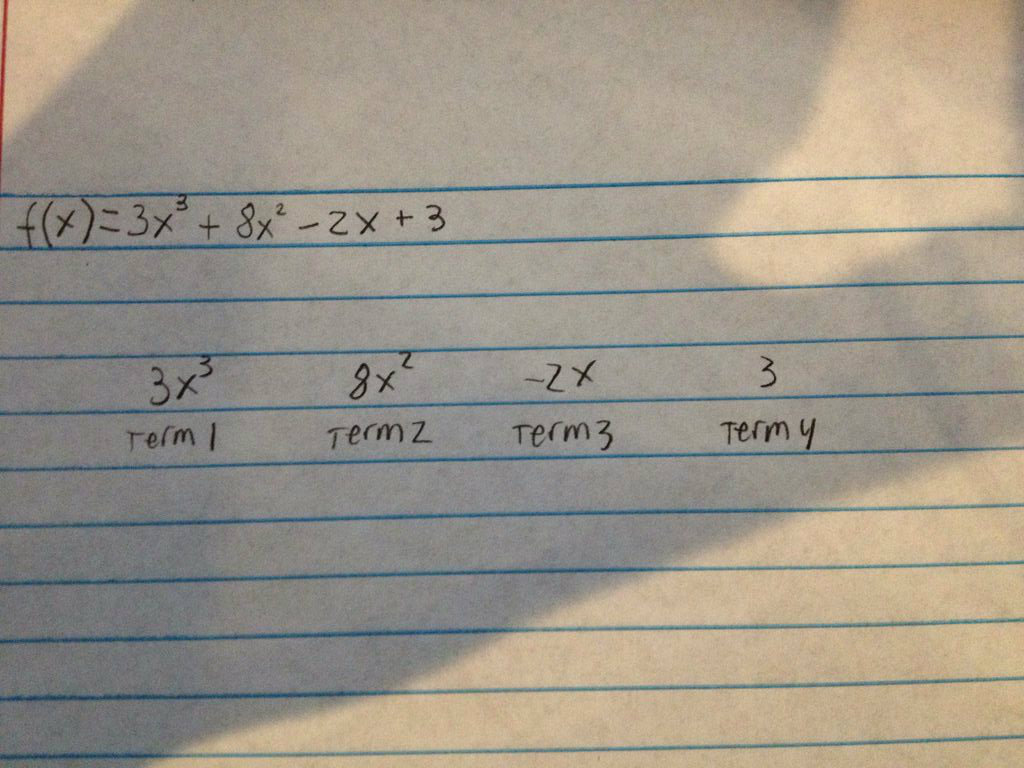 f(x)=3x³ + 8x² - 2x + 3
3x³ 8x² -2x 3
Term 1 Term 2 Term 3 Term 4